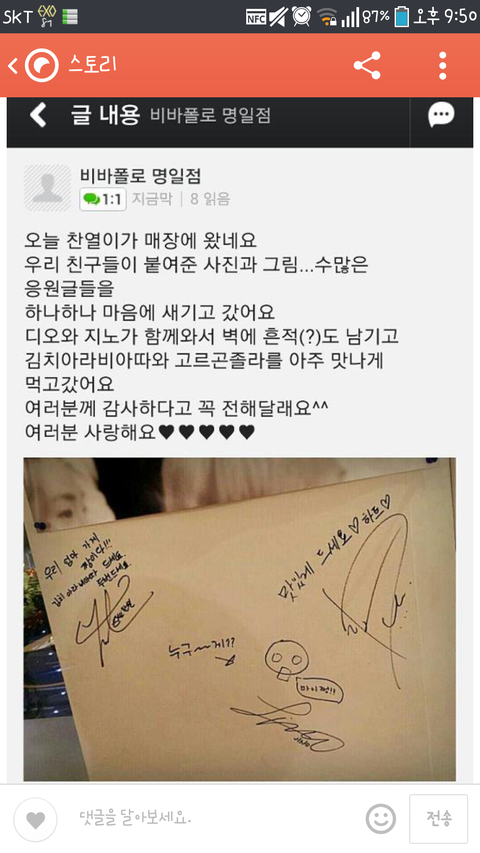 SKT EXO NFC 87% 오후 9:50
스토리
글 내용 비바폴로 명일점
비바폴로 명일점
1:1 지금막 | 8 읽음
오늘 찬열이가 매장에 왔네요
우리 친구들이 붙여준 사진과 그림...수많은
응원글들을
하나하나 마음에 새기고 갔어요
디오와 지노가 함께와서 벽에 흔적(?)도 남기고
김치아라비아따와 고르곤졸라를 아주 맛나게
먹고갔어요
여러분께 감사하다고 꼭 전해달래요^^
여러분 사랑해요♥♥♥♥♥
우리 엄마 가게
짱이다!!!
김치아라비아따 드세요
두번드세요
맛있게 드세요♡하트♡
누구~게??
마이쪙!!
댓글을 달아보세요.
전송